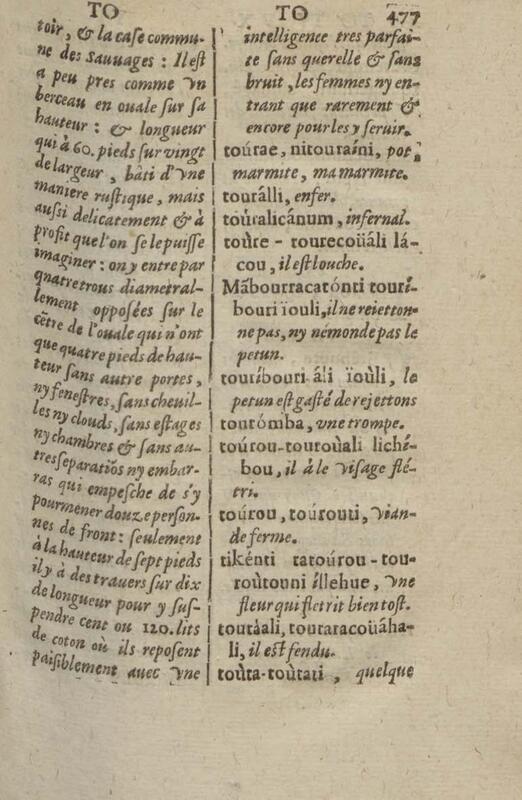 TO
TO
477
toir, & la case commu-
ne des Sauuages : Il est
a peu pres comme vn
berceau en ouale sur sa
hauteur : & longueur
qui à 60. pieds sur vingt
de largeur , bâti d'vne
maniere rustique, mais
aussi delicatement & à
profit que l'on se le puisse
imaginer : on y entre par
quatre trous diametral-
lement opposées sur le
cẽtre de l'ouale qui n'ont
que quatre pieds de hau-
teur sans autre portes,
ny fenestres, sans cheuil-
les ny clouds, sans estages
ny chambres & sans au-
tres separatiõs ny embar-
ras qui empesche de s'y
pourmener douze person-
nes de front : seulement
à la hauteur de sept pieds
il y à des trauers sur dix
de longueur pour y sus-
pendre cent ou 120. lits
de coton où ils reposent
paisiblement auec vne
intelligence tres parfai-
te sans querelle & sans
bruit , les femmes ny en-
trant que rarement &
encore pour les y seruir.
toúrae, nitouraíni, pot,
marmite, ma marmite.
tourálli, enfer.
toùralicánum, infernal.
toùre - tourecoüáli lá-
cou, il est louche.
Mãbourracatónti tourí-
bouri ïouli, il ne reietton-
ne pas, ny némonde pas le
petun.
touríbouri áli ïoùli, le
petun est gasté de rejettons
toutómba, vne trompe.
toúrou-touroùali lichí-
bou, il à le visage flé-
tri.
toúrou, toúrouti, vian-
de ferme.
tikénti tatoúrou - tou-
roùtouni íllehue, vne
fleur qui fletrit bien tost.
toutáali, toutaracoüáha-
li, il est fendu.
toùta-toùtati , quelque